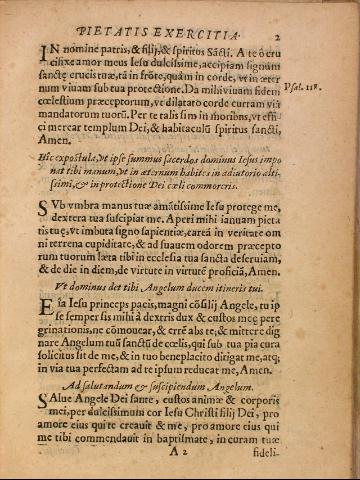 PIETATIS EXERCITIA. 2
IN nomine patris, & filij, & spiritus Sācti. A te ô cru
cifixe amor meus Iesu dulcissime, accipiam signum
sanctę crucis tuæ, tā in frōte, quàm in corde, vt in æter
num viuam sub tua protectione. Da mihi viuam fidem
cœlestium præceptorum, vt dilatato corde curram viā
mandatorum tuorū. Per te talis sim in moribus, vt effi
ci merear templum Dei, & habitaculū spiritus sancti,
Amen.
Psal. 118.
Hic expostula, vt ipse summus sacerdos dominus Iesus impo
nat tibi manum, vt in æternum habites in adiutorio altis
simi, & in protectione Dei cœli commoreris.
SVb vmbra manus tuæ amātissime Iesu protege me,
dextera tua suscipiat me. Aperi mihi ianuam pieta
tis tuę, vt imbuta signo sapientiæ, carea in veritate om
ni terrena cupiditate, & ad suauem odorem præcepto
rum tuorum læta tibi in ecclesia tua sancta deseruiam,
& de die in diem, de virtute in virtutē proficiā, Amen.
Vt dominus det tibi Angelum ducem itineris tui.
EIa Iesu princeps pacis, magni cōsilij Angele, tu ip
se semper sis mihi à dextris dux & custos meę pere
grinationis, ne cōmouear, & errē abs te; & mittere dig
nare Angelum tuū sanctū de cœlis, qui sub tua pia cura
solicitus sit de me, & in tuo beneplacito dirigat me, atq;
in via tua perfectam ad te ipsum reducat me, Amen.
Ad salutandum & suscipiendum Angelum.
SAlue Angele Dei sante, custos animæ & corporis
mei, per dulcissimum cor Iesu Christi filij Dei, pro
amore eius qui te creauit & me, pro amore eius qui
me tibi commendauit in baptismate, in curam tuæ
A 2 fideli-